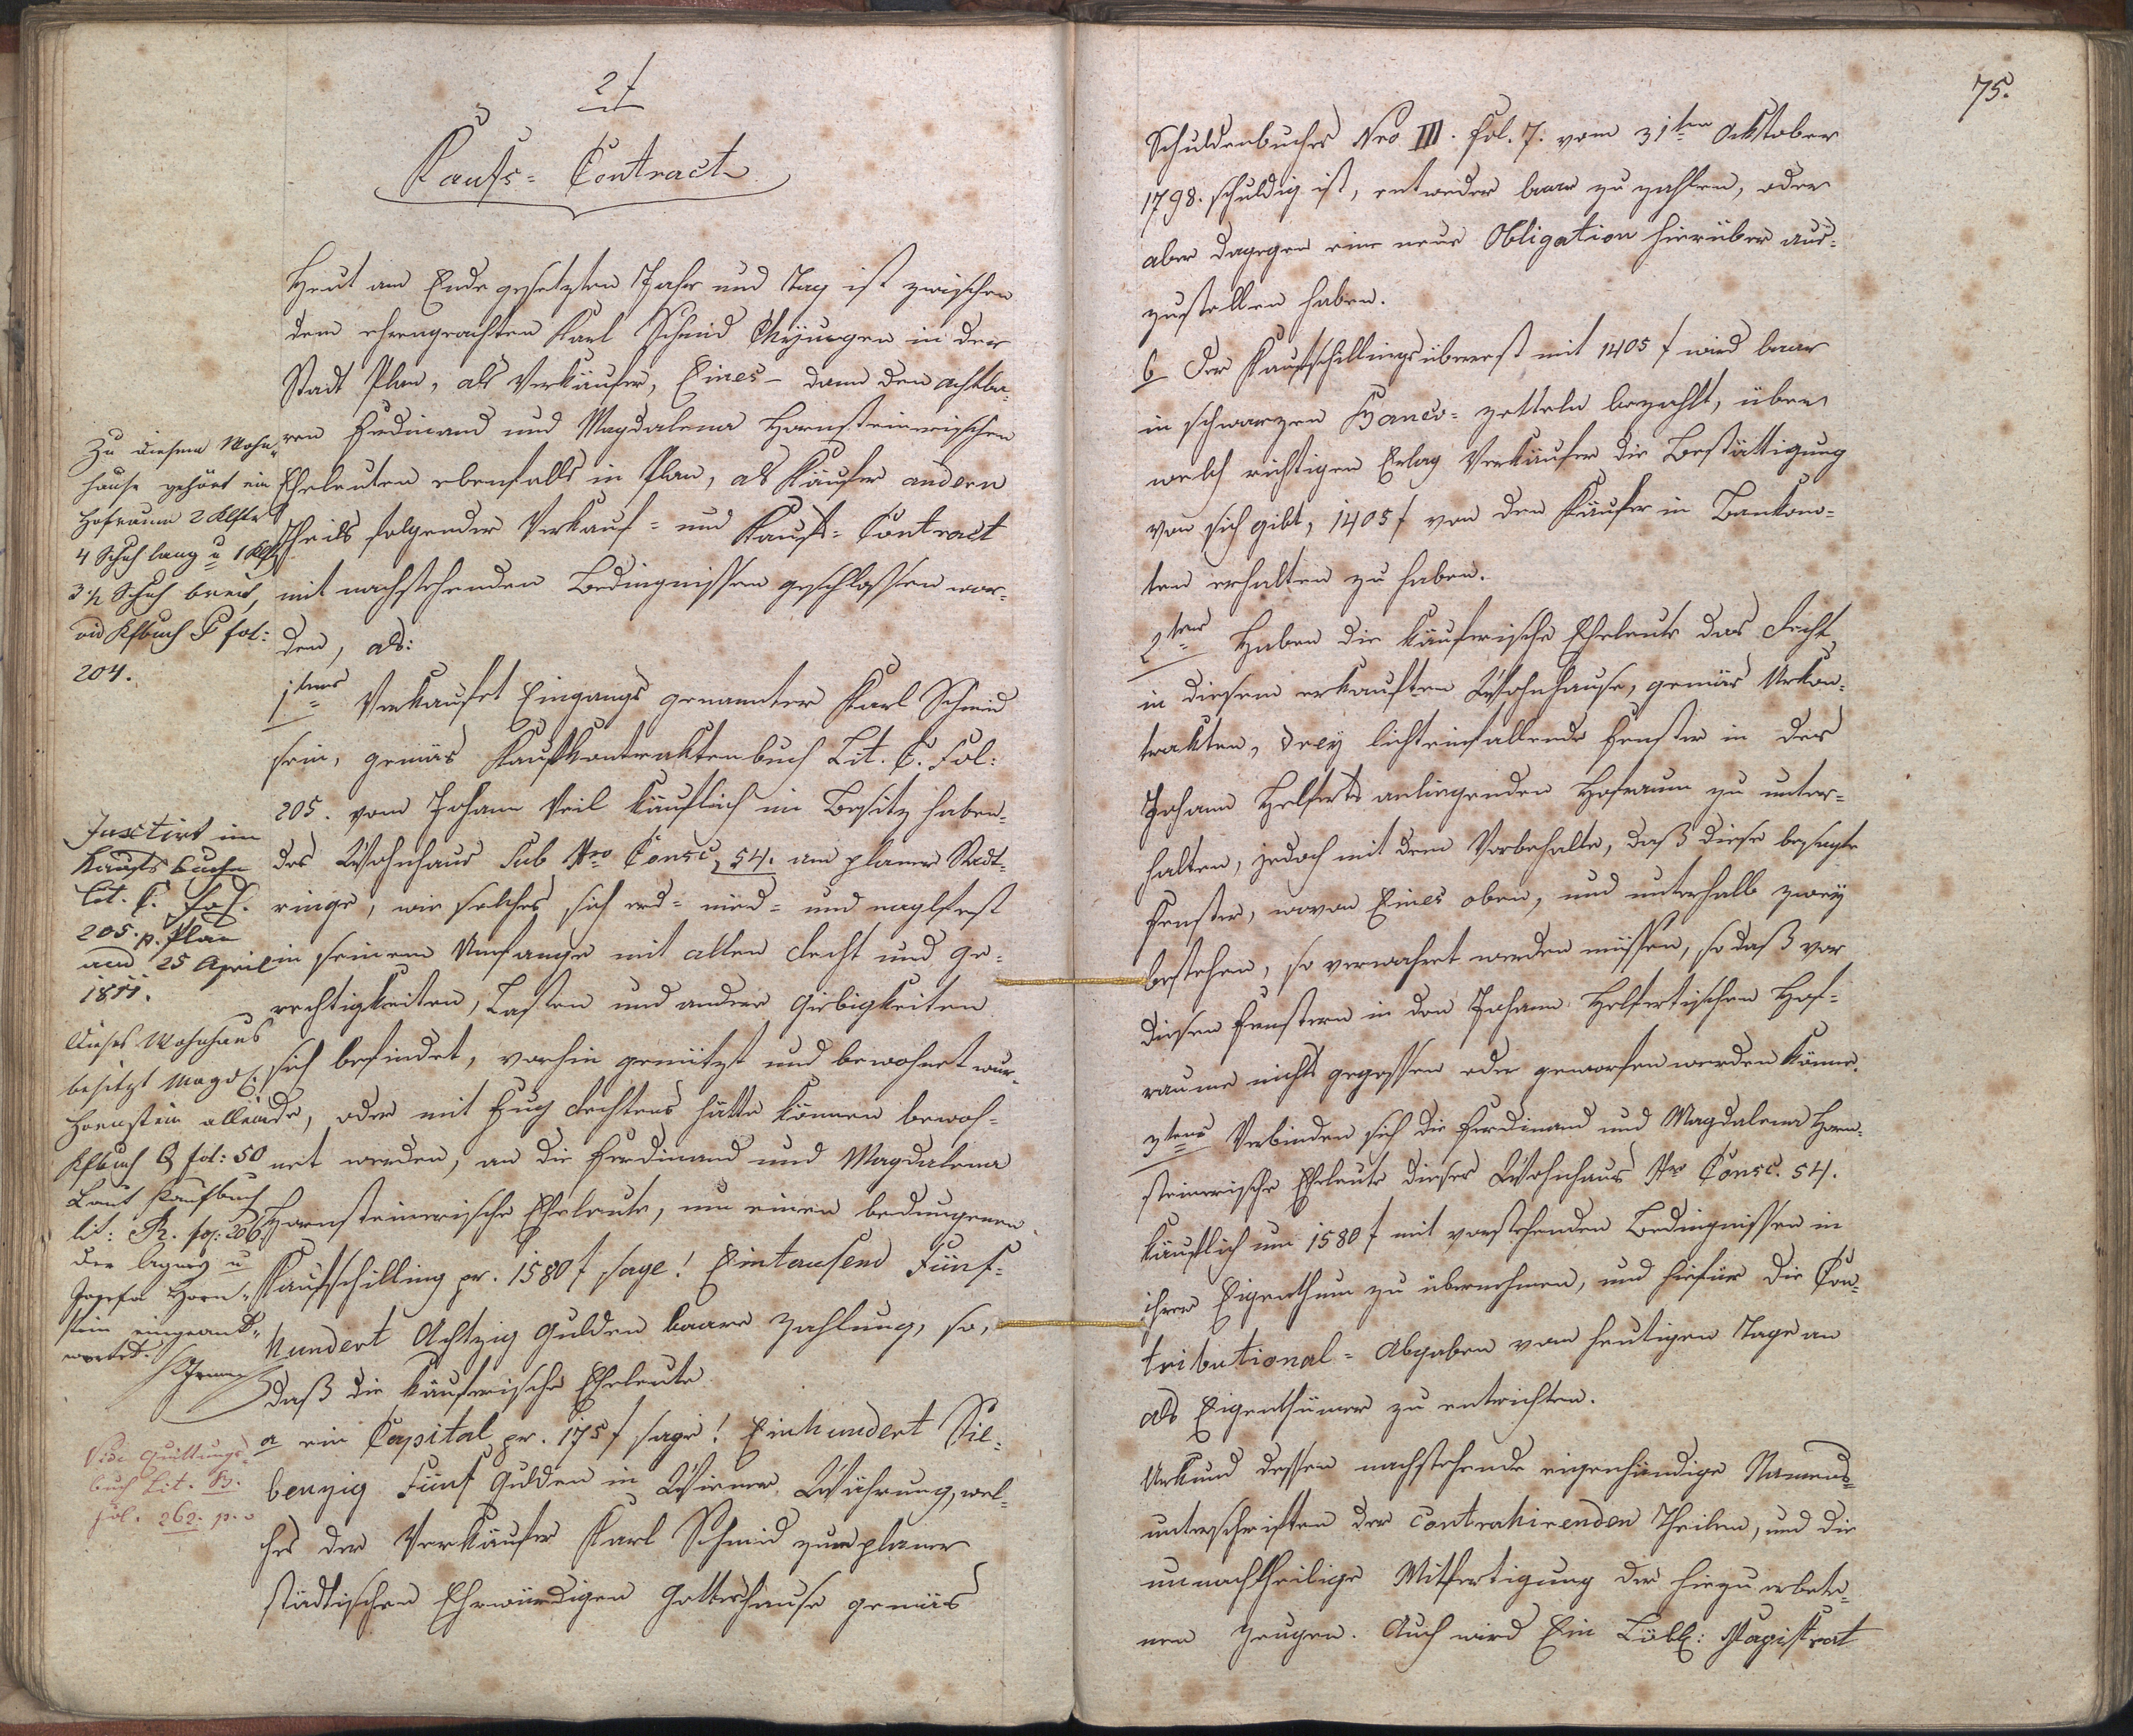 2 f
Kaufs = Contract
Heut am Ende gesetzten Jahr und Tag ist zwischen
dem ehrengeachten Karl Schmid in der
Stadt Plan, als Verkäufer, Eines – dann den achtba-
ren Ferdinand und Magdalena Hornsteinerischen
Eheleuten ebenfalls in Plan, als Käufer andern
Theils folgender Verkauf = und Kaufs = Contract
mit nachstehenden Bedingnissen geschlossen wor-
den, als:
1tens Verkaufet Eingangs genannter Karl Schmid
sein, gemäs Kaufkontraktenbuch Lit. C. Fol:
205. vom Johann Veil käuflich im Besitz haben-
des Wohnhaus Sub Nro Consc. 54. am planer Stadt-
ringe, wie solches sich erd = nied = und naglfest
in seinem Umfange mit allen Recht und Ge-
rechtigkeiten, Lasten und andere Giebigkeiten
sich befindet, vorhin genützt und bewohnet wur-
de, oder mit Fug Rechtens hätte können bewoh-
net werden, an die Ferdinand und Magdalena
Hornsteinerische Eheleute, um einen bedungenen
Kaufschilling pr. 1580 f sage! Eintausend Fünf-
hundert Achtzig Gulden baare Zahlung, so,
daß die käuferische Eheleute
a ein Capital pr. 175 f sage! Einhundert Sie-
benzig Fünf Gulden in Wiener Währung, wel-
ches der Verkäufer Karl Schmid zum planer
städtischen Ehrwürdigen Gotteshause gemäs
Zu diesem Wohn-
hause gehört ein
Hofraum 2 Klftr
4 Schuh lang u 1 Klftr
3 1/2 Schuh breit,
vid Kfbuch P fol:
204.
Justirt im
Kaufsbuche
Lit. C. Fol.
205. p. Plan
am 25 April
1811.
Dieses Wohnhaus
besitzt Magd:
Hornstein allein
Kfbuch Q fol: 50
Laut Kaufbuch
lit: R. fol: 206
der Agnes u
Josefa Horn-
stein eingeant-
wortet.
Vide Quittungs-
buch Lit. B.
fol. 262. p.
75.
Schuldenbuches Nro III. Fol. 7. vom 31ten Oktober
1798. schuldig ist, entweder baar zu zahlen, oder
aber dagegen eine neue Obligation hierüber aus-
zustellen haben.
b Der Kaufschillingsüberrest mit 1405 f wird baar
in schwarzen Banco = zetteln bezahlt, über
welch richtigen Erlag Verkäufer die Bestättigung
von sich gibt, 1405 f von den Käufer in Bankono-
ten erhalten zu haben.
2tens Haben die käuferische Eheleute das Recht
in diesem erkauften Wohnhause, gemäs Urkon-
trakten, drey lichteinfallende Fenster in der
Johann Helferts anliegenden Hofraum zu unter-
halten, jedoch mit dem Vorbehalte, daß diese besagte
Fenster, wovon Eines oben, und unterhalb zwey
bestehen, so verwahret werden müssen, so daß vor
diesen Fenstern in den Johann Helfertischen Hof-
raume nichts gegossen oder geworfen werden könne.
3tens Verbinden sich die Ferdinand und Magdalena Horn-
steinerische Eheleute dieses Wohnhaus Nro Consc. 54.
käuflich um 1580 f mit vorstehenden Bedingnissen in
ihren Eigenthum zu übernehmen, und hiefür die Con-
tributional = Abgaben vom heutigen Tage an
als Eigenthümer zu entrichten.
Urkund dessen nachstehende eigenhändige Namens-
unterschriften der contrahirenden Theilen, und die
unnachtheilige Mitfertigung der hiezu erbete-
nen Zeugen. Auch wird Ein Löbl: Magistrat